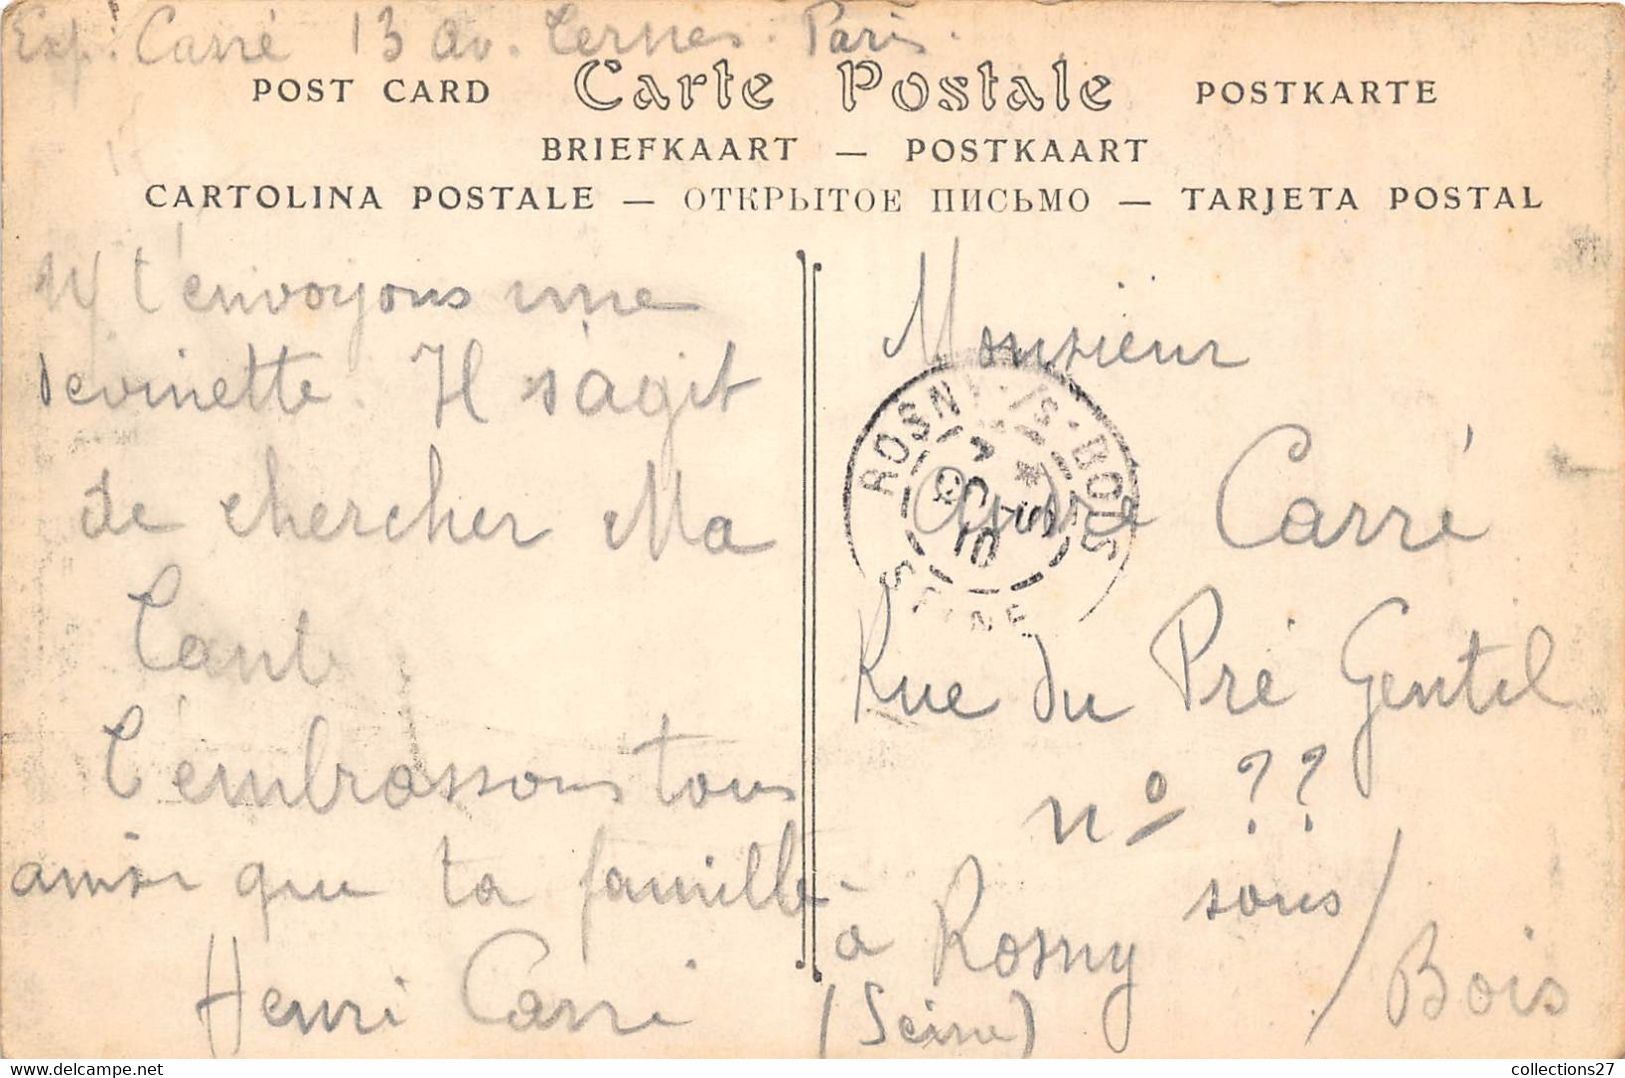 Exp: Carré 13 av. Ternes. Paris.
POST CARD Carte Postale POSTKARTE
BRIEFKAART — POSTKAART
CARTOLINA POSTALE — ОТКРЫТОЕ ПИСЬМО — TARJETA POSTAL
t'envoyons une
devinette. Il s'agit
de chercher Ma
Tant
T'embrassons tous
ainsi que ta famille
Henri Carré
Monsieur
André Carré
Rue du Pré Gentil
nº ??
à Rosny sous/Bois
(Seine)
ROSNY-S/S-BOIS
SEINE
collections27